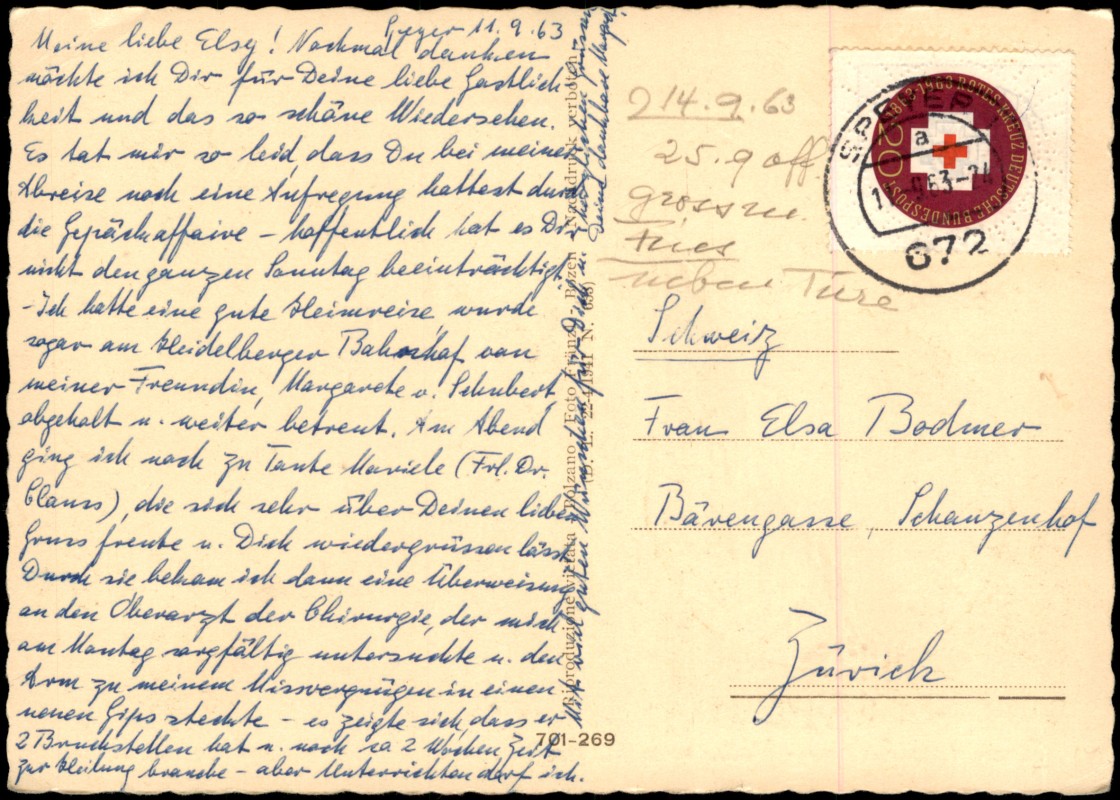 Speyer 11.9.63
Meine liebe Elsy! Nochmal danken
möchte ich Dir für Deine liebe Gastlich-
keit und das so schöne Wiedersehen.
Es tat mir so leid, dass Du bei meiner
Abreise noch eine Aufregung hattest durch
die Gepäckaffaire - hoffentlich hat es Dir
nicht den ganzen Sonntag beeinträchtigt.
- Ich hatte eine gute Heimreise, wurde
sogar am Heidelberger Bahnhof von
meiner Freundin, Margarete v. Schubert,
abgeholt u. weiter betreut. Am Abend
ging ich noch zu Tante Mariele (Frl. Dr.
Clauss), die sich sehr über Deinen lieben
Gruss freute u. Dich wiedergrüssen lässt.
Durch sie bekam ich dann eine Überweisung
an den Oberarzt der Chirurgie, der mich
am Montag sorgfältig untersuchte u. den
Arm zu meinem Missvergnügen in einen
neuen Gips steckte - es zeigte sich, dass er
2 Bruchstellen hat u. noch ca 2 Wochen Zeit
zur Heilung brauche - aber Unterrichten darf ich.
Mit viel guten Wünschen für Dich u. herzlichen Grüssen
Deine dankbare
Riproduzione vietata - Bolzano Foto Fränzl - Bozen - Nachdruck verboten
22-4-1941 N. 638)
701-269
14.9.63
25.9 off.
grossm.
Fries
neben Türe
1963 ROTES KREUZ DEUTSCHE BUNDESPOST
20
SPEYER
a
63-24
672
Schweiz
Frau Elsa Bodmer
Bärengasse, Schanzenhof
Zürich